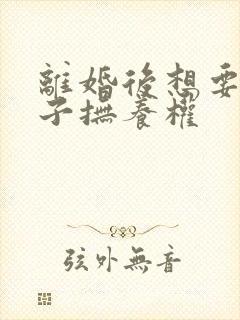 離婚後想要
子撫養權
弦外無音